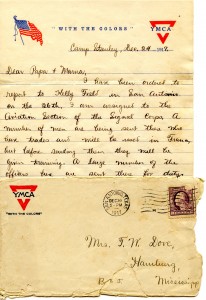 "WITH THE COLORS"
YMCA
Camp Stanley, Nov. 24 1917.
Dear Papa & Mama,
I have been ordered to
report to Kelly Field in San Antonio
on the 26th. I am assigned to the
Aviation Section of the Signal Corps. A
number of men are being sent there who
have trades and will be used in France,
but before sending them they will be
given training. A large number of the
officers here are sent there for duty
YMCA
"WITH THE COLORS"
1917
Mrs. T. W. Dove,
Hamburg,
Mississippi